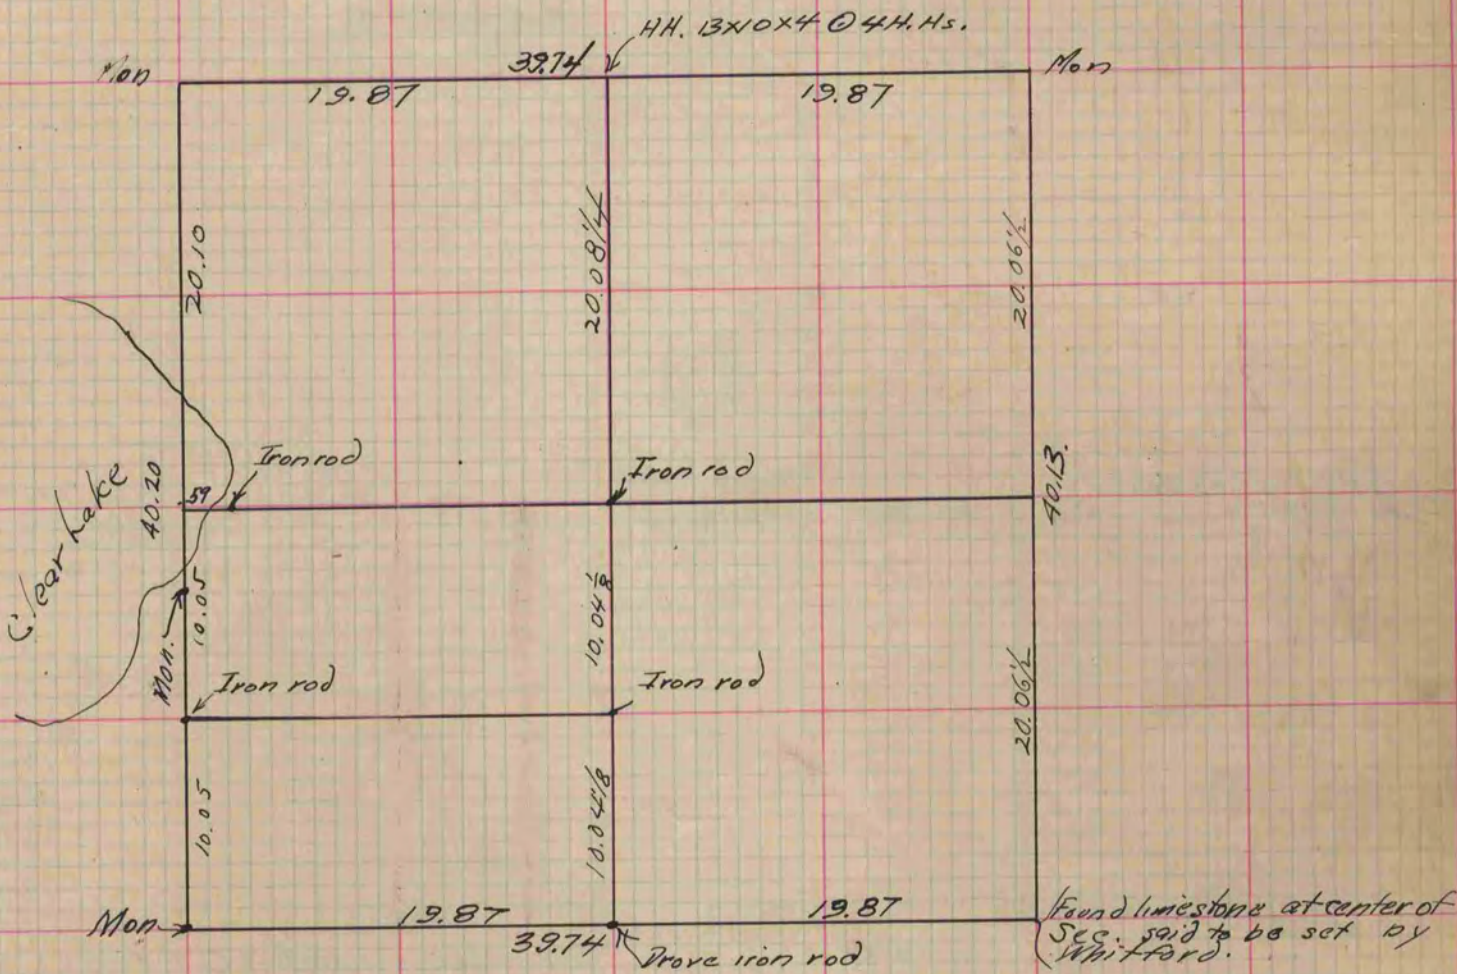 HH. 13x10x4 ⊙ 4H.Hs.
39.74
Mon
Mon
19.87
19.87
20.10
20.08 1/4
20.06 1/2
Clear Lake
40.20
.59
Iron rod
Iron rod
40.13.
10.05
Mon.
10.04 1/8
Iron rod
Iron rod
20.06 1/2
10.05
10.04 1/8
Mon
19.87
19.87
39.74
Drove iron rod
Found limestone at center of
Sec. said to be set by
Whitford.